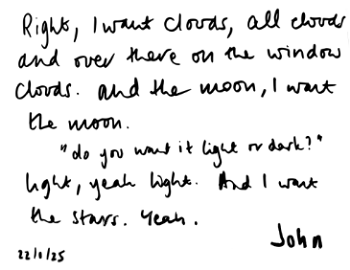 Right, I want clouds, all clouds
and over there on the window
clouds. and the moon, I want
the moon.
"do you want it light or dark?"
light, yeah light. And I want
the stars. Yeah.
John
22/1/25